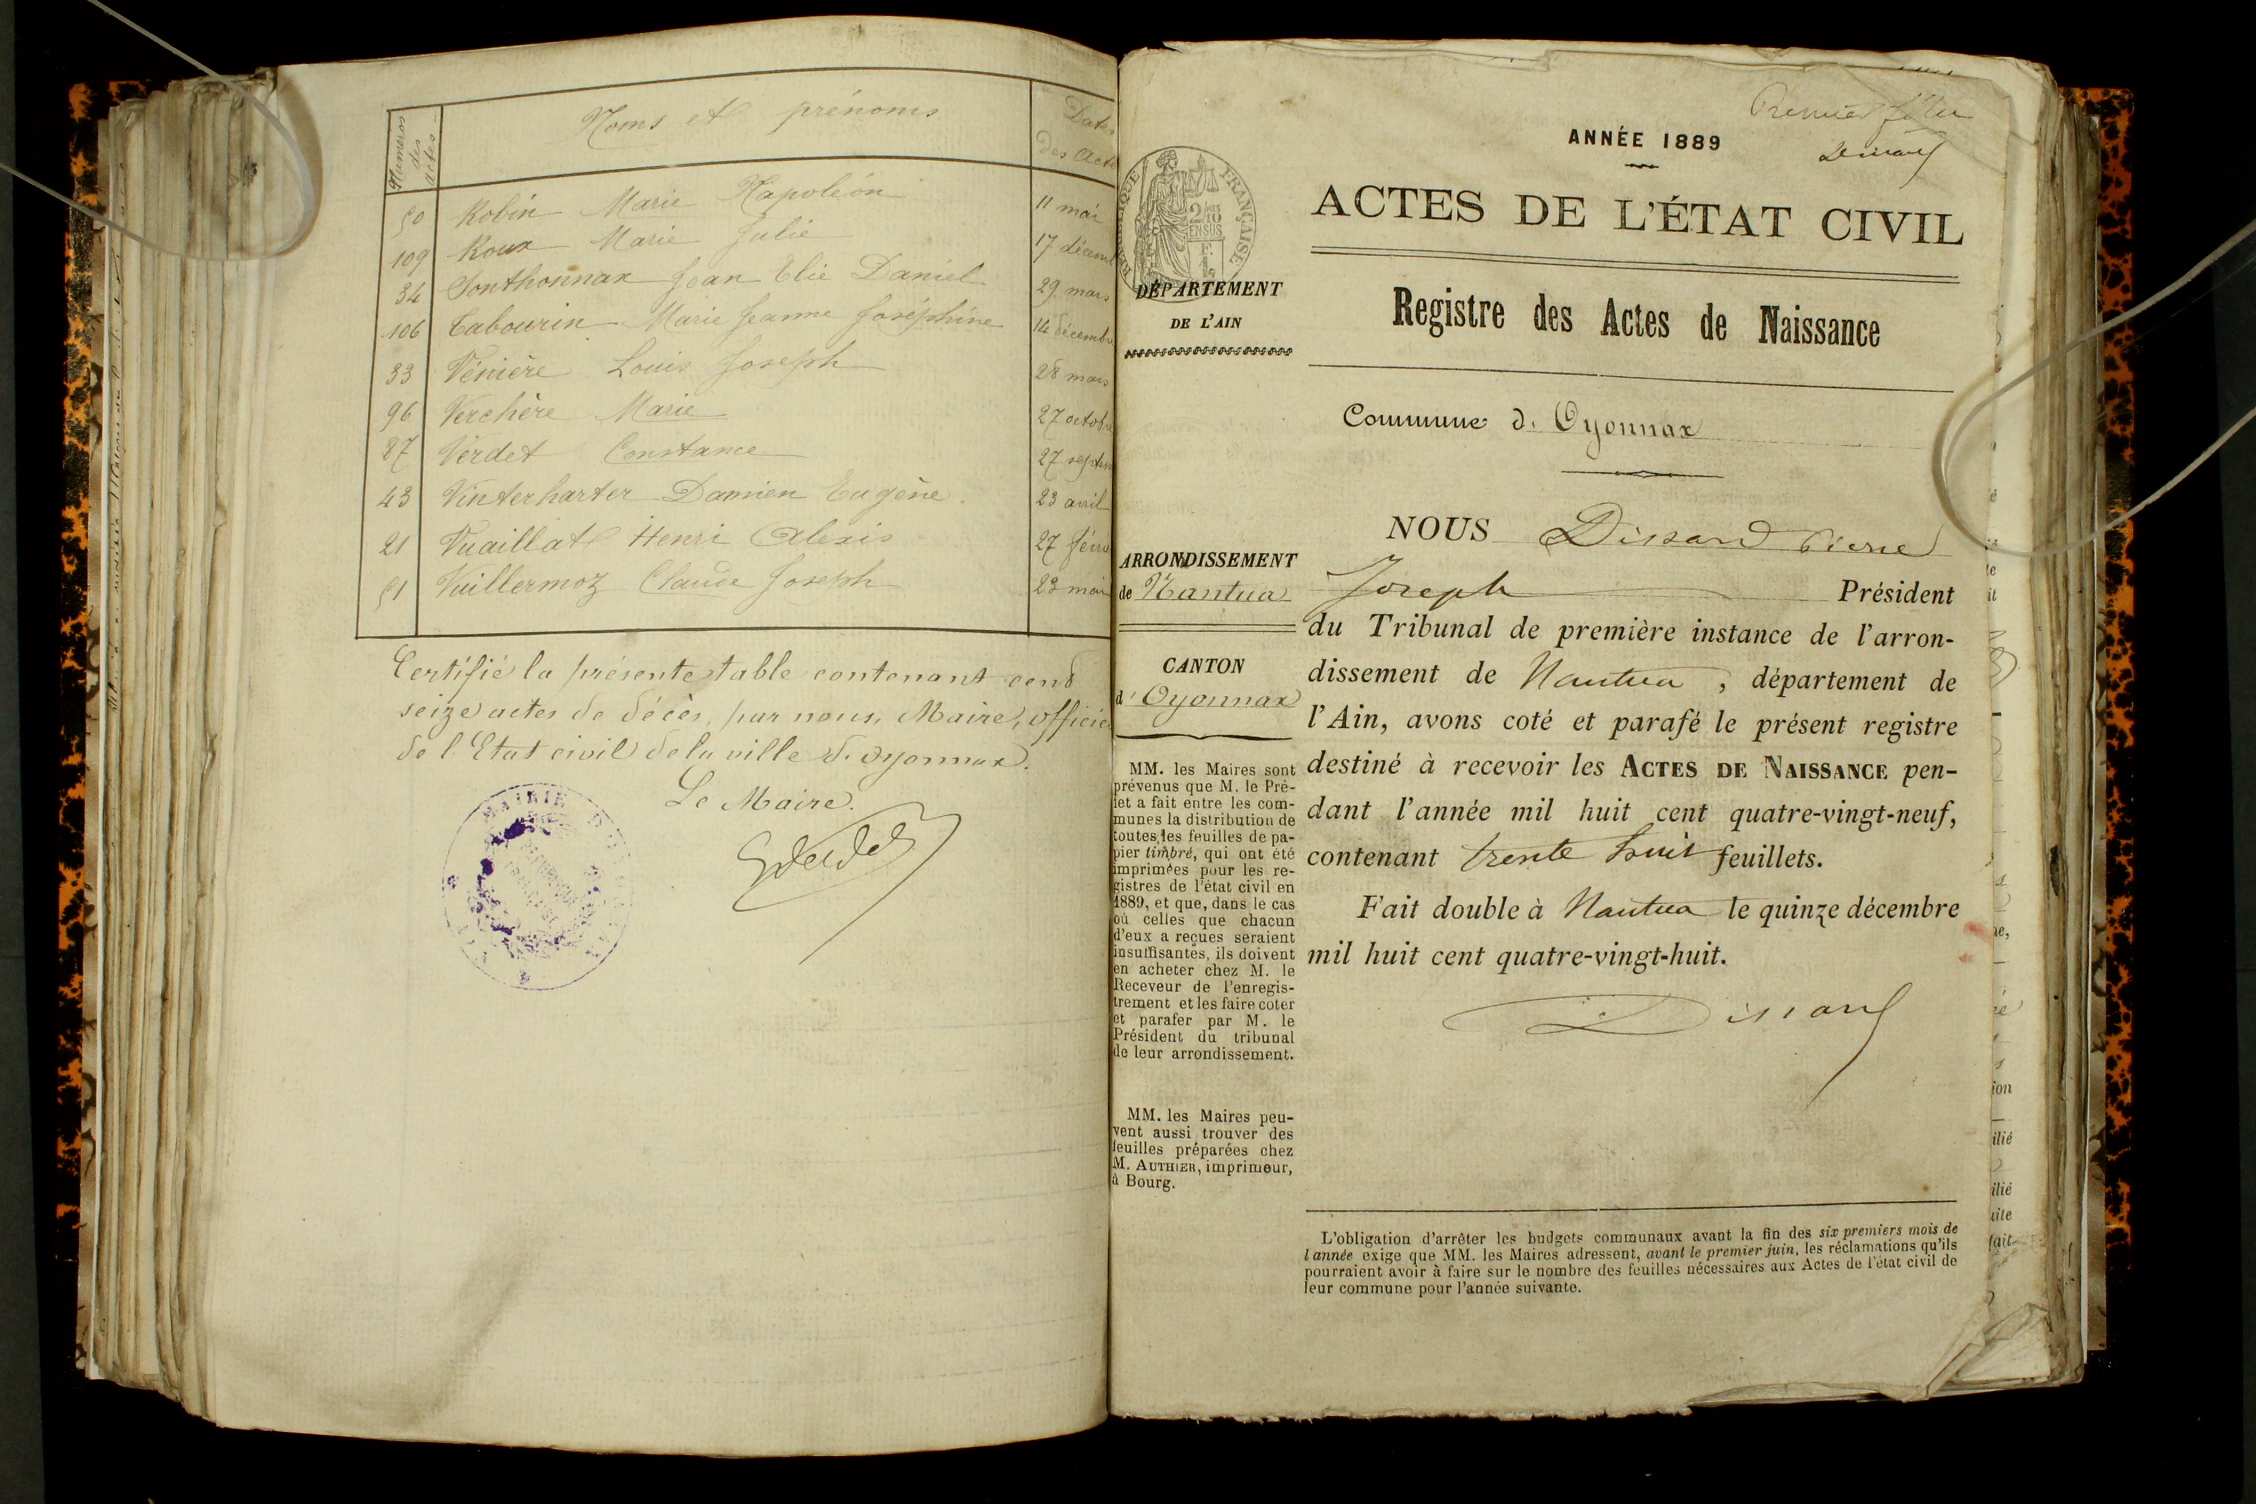 Numéros des actes
Noms et prénoms
Dates des Act
50 Robin Marie Napoléon 11 mai
109 Roux Marie Julie 17 décem
34 Sonthonnax Jean Elie Daniel 29 mars
106 Tabourin Marie Jeanne Joséphine 14 décembr
33 Vénière Louis Joseph 28 mars
96 Verchère Marie 27 octobre
87 Verdet Constance 27 septem
43 Vinterharter Damien Eugène 23 avril
21 Vuaillat Henri Alexis 27 févri
51 Vuillermoz Claude Joseph 23 mai
Certifié la présente table contenant cent
seize actes de décès, par nous, Maire, officier
de l'Etat civil de la ville d'Oyonnax.
Le Maire.
MAIRIE
Premier
ANNÉE 1889
Dissard
ACTES DE L'ÉTAT CIVIL
RÉPUBLIQUE FRANÇAISE
DÉPARTEMENT
DE L'AIN
Registre des Actes de Naissance
Commune d'Oyonnax
ARRONDISSEMENT
de Nantua
CANTON
d'Oyonnax
MM. les Maires sont
prévenus que M. le Pré-
fet a fait entre les com-
munes la distribution de
toutes les feuilles de pa-
pier timbré, qui ont été
imprimées pour les re-
gistres de l'état civil en
1889, et que, dans le cas
où celles que chacun
d'eux a reçues seraient
insuffisantes, ils doivent
en acheter chez M. le
Receveur de l'enregis-
trement et les faire coter
et parafer par M. le
Président du tribunal
de leur arrondissement.
MM. les Maires peu-
vent aussi trouver des
feuilles préparées chez
M. AUTHIER, imprimeur,
à Bourg.
NOUS Dissard Pierre
Joseph Président
du Tribunal de première instance de l'arron-
dissement de Nantua, département de
l'Ain, avons coté et parafé le présent registre
destiné à recevoir les ACTES DE NAISSANCE pen-
dant l'année mil huit cent quatre-vingt-neuf,
contenant trente huit feuillets.
Fait double à Nantua le quinze décembre
mil huit cent quatre-vingt-huit.
Dissard
L'obligation d'arrêter les budgets communaux avant la fin des six premiers mois de
l'année exige que MM. les Maires adressent, avant le premier juin, les réclamations qu'ils
pourraient avoir à faire sur le nombre des feuilles nécessaires aux Actes de l'état civil de
leur commune pour l'année suivante.